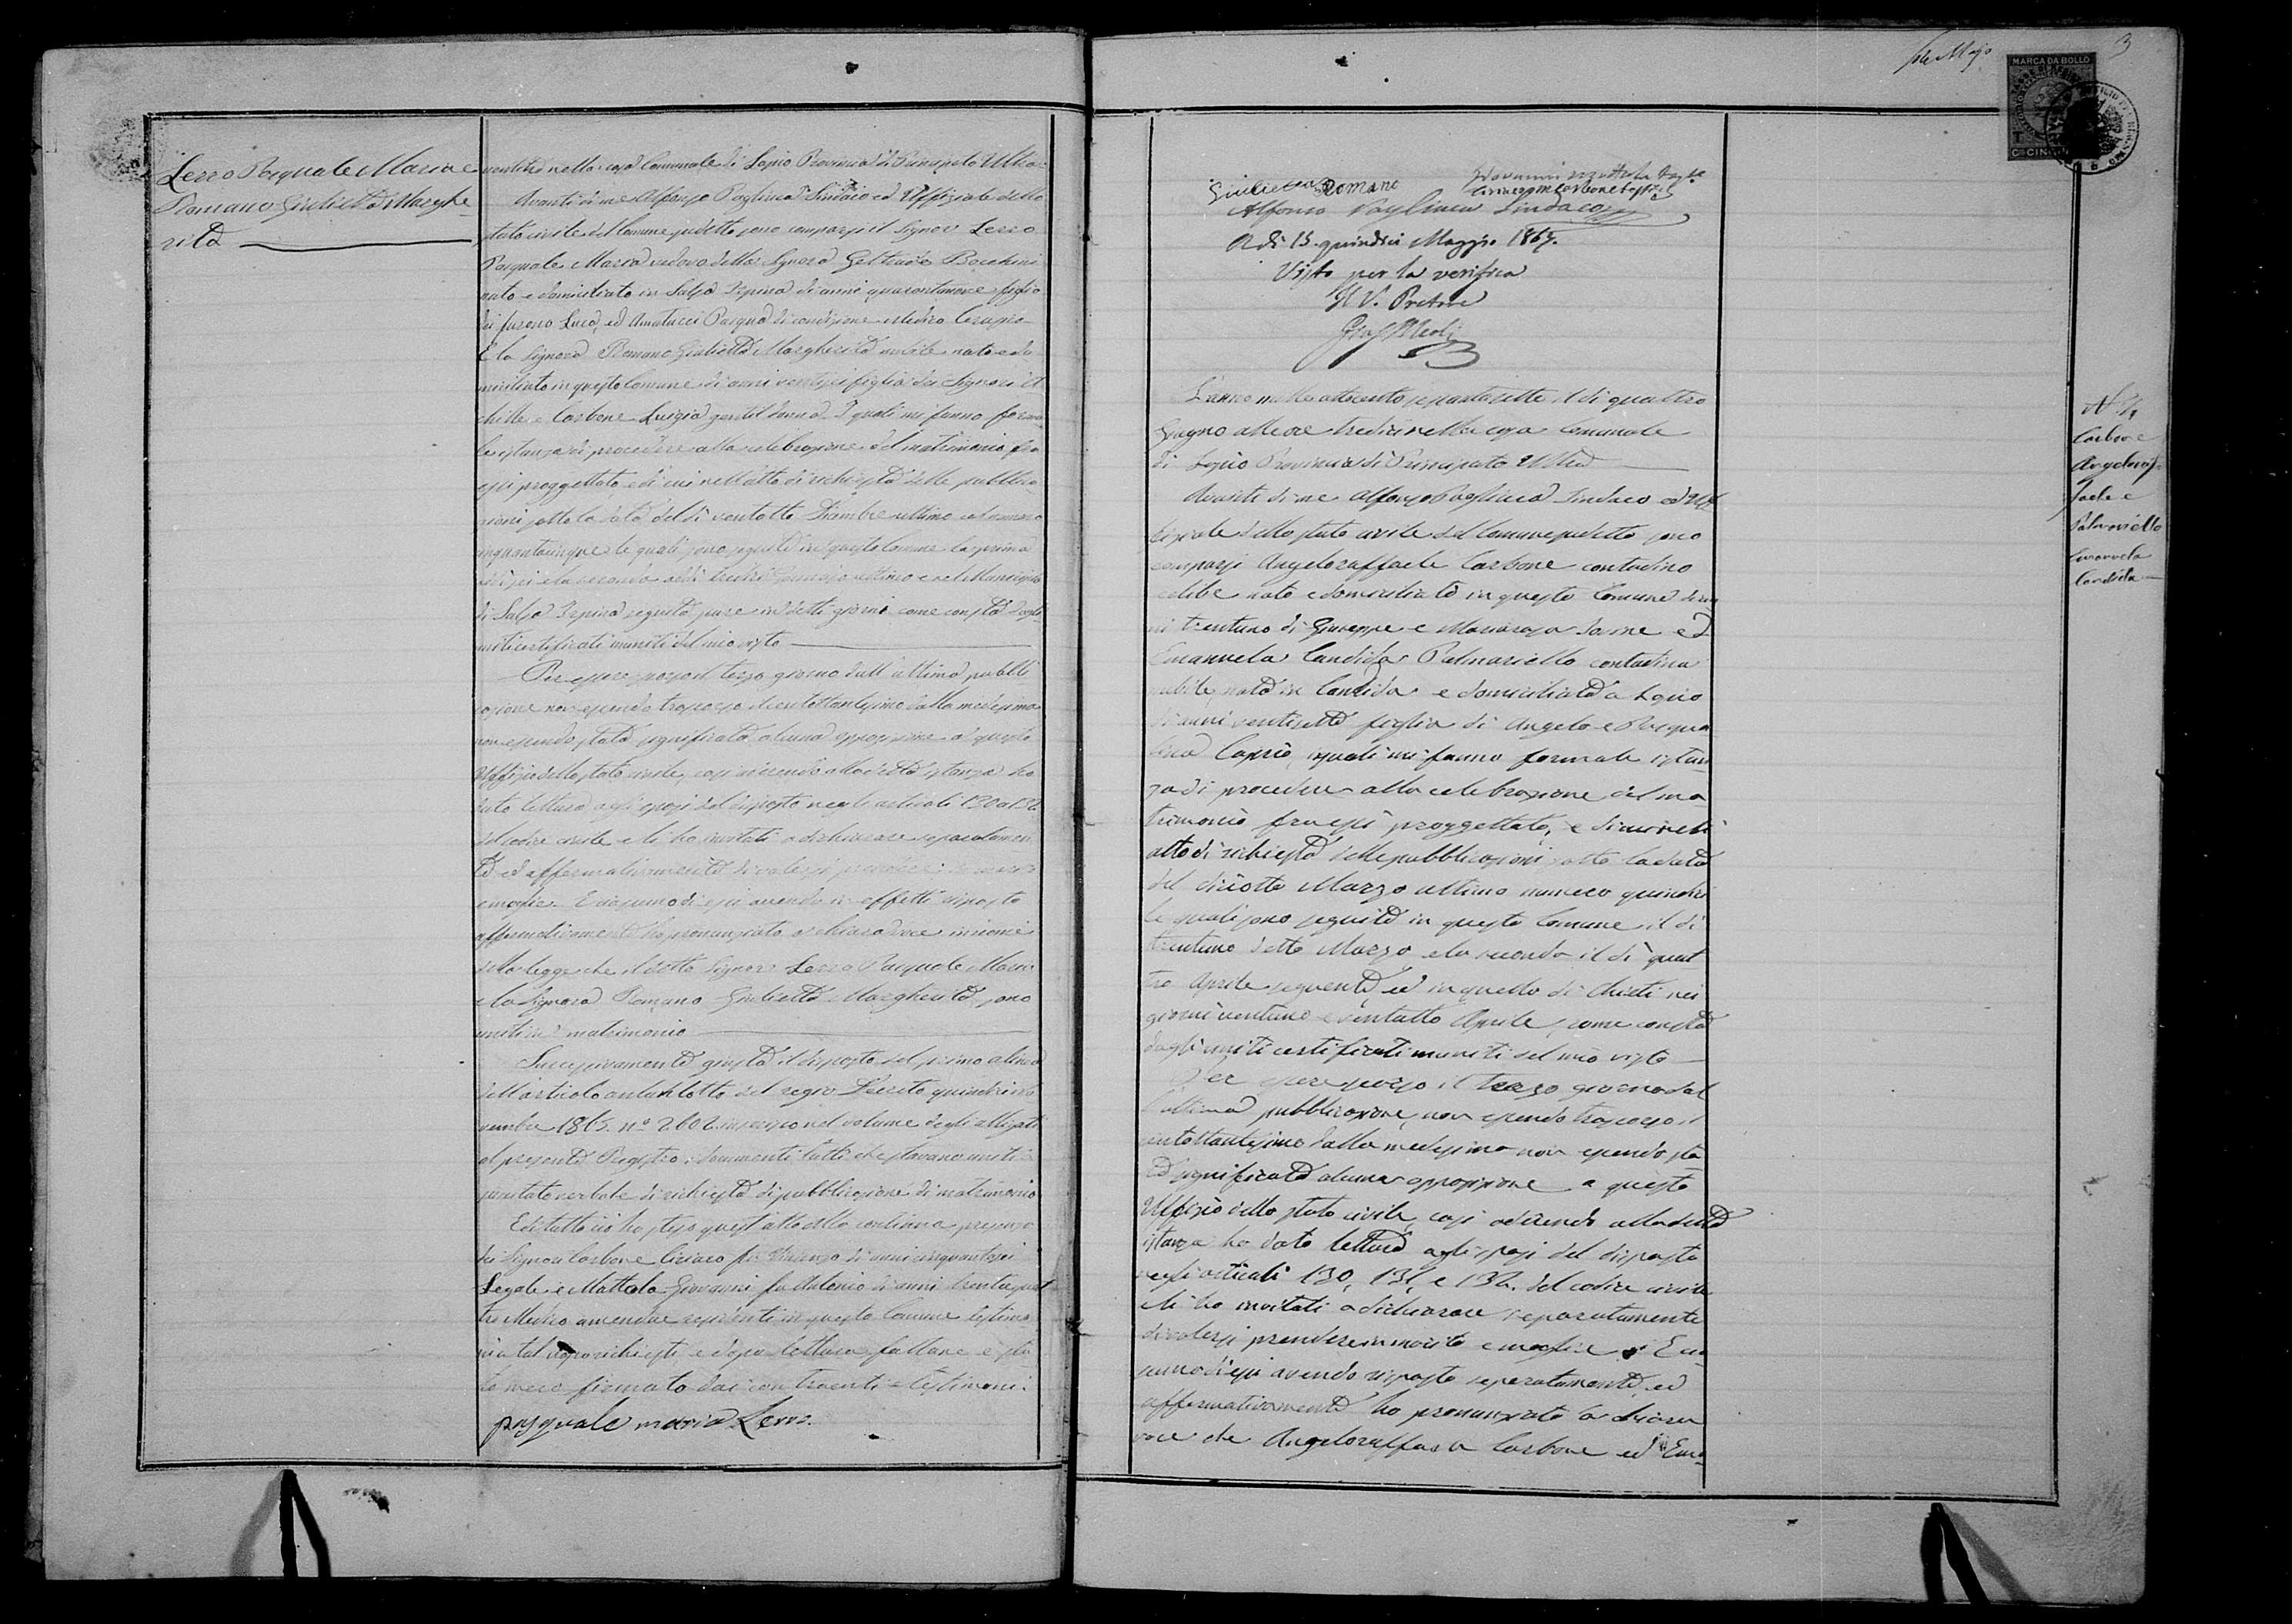 Lerro Pasquale Maria e
Romano Giulietta Marghe
rita
nella casa Comunale di Lapio Provincia di Principato Ultra
Avanti di me Alfonso Pagliuca Sindaco ed Uffiziale dello
stato civile del Comune sudetto sono comparsi il Signor Lerro
Pasquale Maria vedovo della Signora Geltrude Bocchini
nato e domiciliato in Salza Irpina di anni quarantanove figlio
dei furono Luca, ed Amatucci Pasqua di condizione Medico Cerusico
E la Signora Romano Giulietta Margherita nubile nata e do
miciliata in questo Comune di anni ventisei figlia dei Signori A
chille e Carbone Luigia gentildonna. I quali mi fanno forma
le istanza di procedere alla celebrazione del matrimonio fra
essi proggettato e di cui nell'atto di richiesta delle pubblica
zioni sotto la data del dì ventotto Dicembre ultimo col numero
cinquantacinque le quali sono seguite in questo Comune la prima
sei e la seconda addì tredici Gennajo ultimo e nel Municipio
di Salza Irpina seguite pure in detti giorni come consta dagli
uniti certificati muniti del mio visto
Per essere scorso il terzo giorno dall'ultima pubbli
cazione non essendo trascorso il centottantesimo dalla medesima
non essendo stata significata alcuna opposizione a questo
Uffizio dello stato civile, così aderendo alla detta istanza ho
dato lettura agli sposi del disposto negli articoli 130 a 132
del codice civile e li ho invitati a dichiarare separatamen
te ed affermativamente di volersi prendere in marito
e moglie. E ciascuno di essi avendo in effetti risposto
affermativamente ho pronunziato a chiara voce in nome
della legge che il detto Signor Lerro Pasquale Maria
e la Signora Romano Giulietta Margherita sono
uniti in matrimonio
Successivamente giusta il disposto del primo alinea
dell'articolo del regio Decreto quindici no
vembre 1865. n.º 2602 inserisco nel volume degli allegati
al presente Registro i documenti tutti che stavano uniti
verbale di richiesta di pubblicazione di matrimonio
E di tutto ciò ho steso quest'atto alla continua presenza
dei Signori Carbone Ciriaco fu Vincenzo di anni cinquantasei
Legale e Mattola Giovanni fu Antonio di anni trentaquat
tro Medico amendue residenti in questo Comune testimo
ni a tal uopo richiesti e dopo lettura fattane è sta
to firmato dai contraenti e testimoni.
pasquale maria Lerro.
3
MARCA DA BOLLO
Giulietta Romano
Giovanni Mattola teste
Ciriaco Carbone teste
Alfonso Pagliuca Sindaco
A dì 15 quindici Maggio 1867.
Visto per la verifica
Il V. Pretore
L'anno mille ottocento sessantasette il dì quattro
Giugno alle ore tredici nella casa Comunale
di Lapio Provincia di Principato Ultra
Avanti di me Alfonso Pagliuca Sindaco ed Uf
fiziale dello stato civile del Comune sudetto sono
comparsi Angeloraffaele Carbone contadino
celibe nato e domiciliato in questo Comune di an
ni trentuno di Giuseppe e Mariarosa Iavine ed
Emanuela Candida Palmariello contadina
nubile nata in Candida e domiciliata a Lapio
di anni ventisette figlia di Angelo e Pasqua
lina Caprio, i quali mi fanno formale istan
za di procedere alla celebrazione del ma
trimonio fra essi proggettato, e di cui nell'
atto di richiesta delle pubblicazioni sotto la data
del diciotto Marzo ultimo numero quindici
le quali sono seguite in questo Comune il dì
trentuno detto Marzo e la seconda il dì quat
tro Aprile seguente, ed in quello di Chieti nei
giorni ventuno e ventotto Aprile, come consta
dagli uniti certificati muniti del mio visto
Per essere scorso il terzo giorno dal
l'ultima pubblicazione, non essendo trascorso il
centottantesimo dalla medesima non essendo sta
ta significata alcuna opposizione a questo
Uffizio dello stato civile, così aderendo alla detta
istanza ho dato lettura agli sposi del disposto
negli articoli 130, 131, e 132. del codice civile
e li ho invitati a dichiarare separatamente
di volersi prendere in marito e moglie. E cia
scuno di essi avendo risposto separatamente, ed
affermativamente ho pronunziato a chiara
voce che Angeloraffaele Carbone ed Ema-
N. 4
Carbone
Angeloraf
faele e
Palmariello
Emanuela
Candida